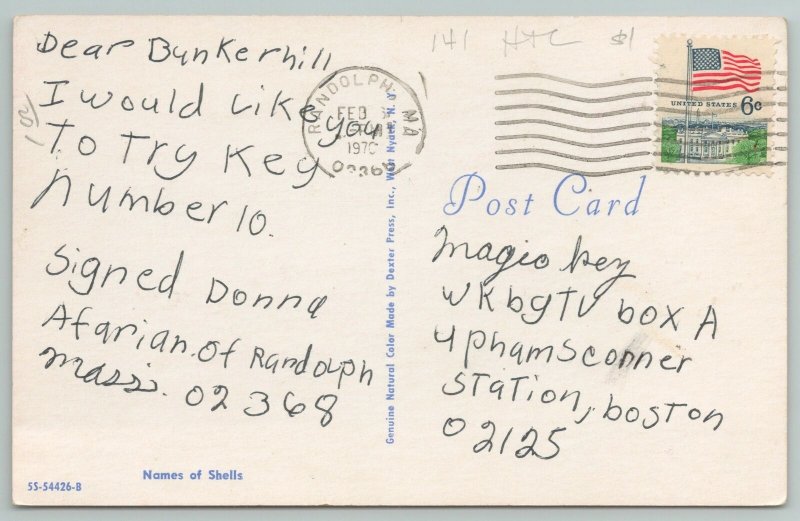 Dear Bunkerhill
I would Like you
To Try Key
number 10.
Signed Donna
Afarian. of Randolph
Mass. 02368
Names of Shells
5S-54426-B
Genuine Natural Color Made by Dexter Press, Inc., West Nyack, N.Y.
141 HTL $1
RANDOLPH, MA
FEB
1970
02368
UNITED STATES 6c
Post Card
Magic key
WkbgTV box A
Uphams corner
STaTion, boston
02125